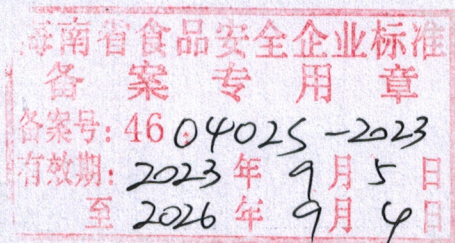 海南省食品安全企业标准
备案专用章
备案号: 46 04025-2023
有效期: 2023年9月5日
至 2026年9月4日